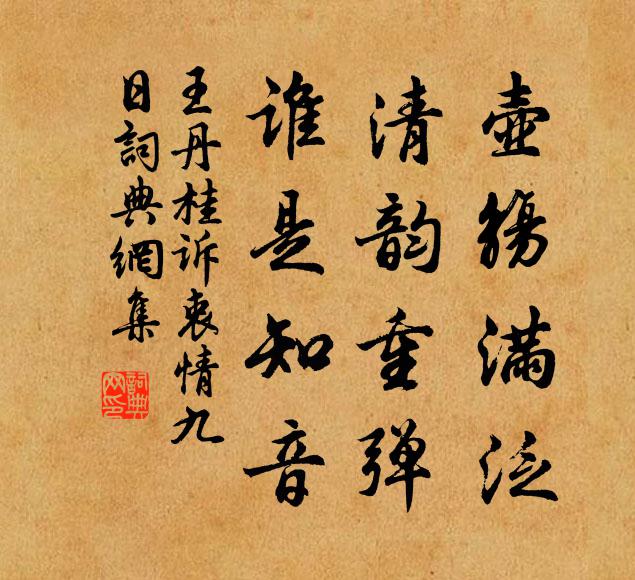 壺觴滿泛
清韵重弹
誰是知音
王丹桂诉衷情九
日詞典網集
詞典
网印